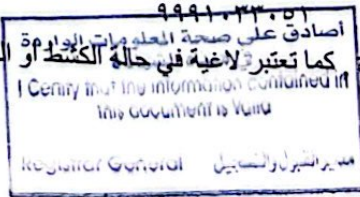 ٩٩٩١٠٣٣٠٥١
أصادق على صحة المعلومات الواردة
كما تعتبر لاغية في حالة الكشط أو
I Certify that the information contained in
this document is Valid
Registrar General مدير القبول والتسجيل